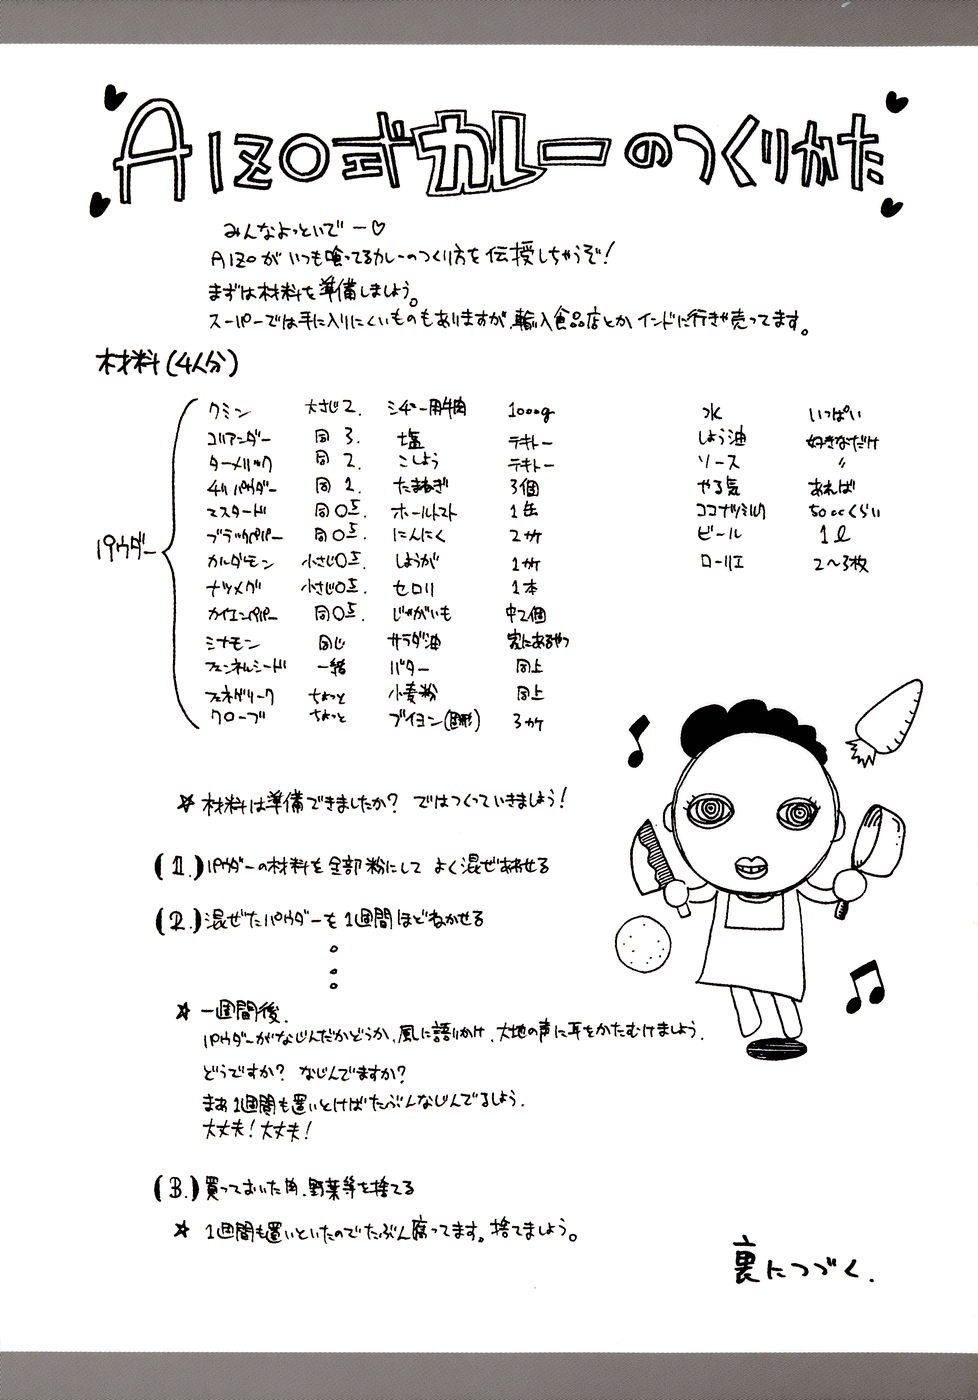 AIZO式カレーのつくりかた
みんなよっといでー♡
AIZOがいつも喰ってるカレーのつくり方を伝授しちゃうぞ!
まずは材料を準備しましょう。
スーパーでは手に入りにくいものもありますが、輸入食品店とかインドに行きゃ売ってます。
材料(4人分)
パウダー
クミン 大さじ2.
コリアンダー 同 3.
ターメリック 同 2.
チリパウダー 同 1.
マスタード 同 0.5.
ブラックペパー 同 0.5.
カルダモン 小さじ0.5.
ナツメグ 小さじ0.5.
カイエンペパー 同 0.5.
シナモン 同じ
フェンネルシード 一緒
フェネグリーク ちょっと
クローブ ちょっと
シチュー用牛肉 1000g
塩 テキトー
こしょう テキトー
たまねぎ 3個
ホールトマト 1缶
にんにく 2ケ
しょうが 1ケ
セロリ 1本
じゃがいも 中2個
サラダ油 家にあるやつ
バター 同上
小麦粉 同上
ブイヨン(固形) 3ケ
水 いっぱい
しょう油 好きなだけ
ソース 〃
やる気 あれば
ココナツミルク 50ccくらい
ビール 1ℓ
ローリエ 2〜3枚
☆ 材料は準備できましたか? ではつくっていきましょう!
(1.) パウダーの材料を全部粉にして よく混ぜあわせる
(2.) 混ぜたパウダーを1週間ほどねかせる
。
。
。
☆ 一週間後.
パウダーがなじんだかどうか、風に語りかけ、大地の声に耳をかたむけましょう.
どうですか? なじんでますか?
まぁ1週間も置いとけばたぶんなじんでるしょう.
大丈夫! 大丈夫!
(3.) 買っておいた肉、野菜等を捨てる
☆ 1週間も置いといたのでたぶん腐ってます。捨てましょう。
裏につづく.